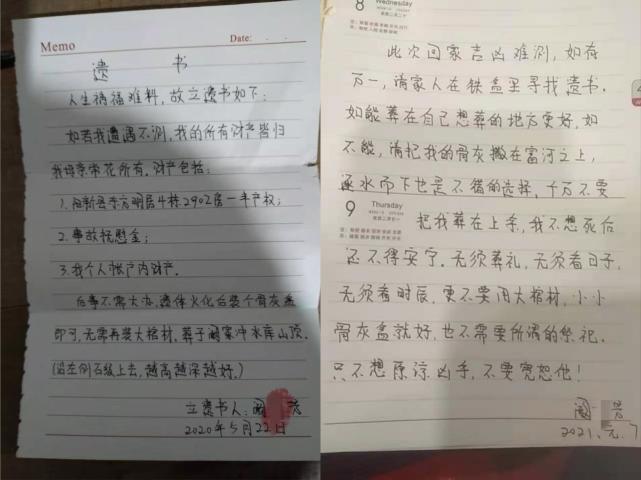 Memo
Date:
遗 书
人生祸福难料，故立遗书如下：
如若我遭遇不测，我的所有财产皆归
我母亲常花所有，财产包括：
1.阳新县东方明居4栋2902房一半产权；
2.事故抚恤金；
3.我个人帐户内财产。
后事不需大办，遗体火化后装个骨灰盒
即可，无需再装大棺材，葬于阚家冲水库山顶。
（沿左侧石级上去，越高越深越好。）
立遗书人：阚 芳
2020年5月22日
8
Wednesday
此次回家吉凶难测，如有
万一，请家人在铁盒里寻找遗书。
如能葬在自己想葬的地方更好，如
不能，请把我的骨灰撒在富河之上，
逐水而下也是不错的选择，千万不要
9
Thursday
把我葬在上手，我不想死后
还不得安宁。无须葬礼，无须看日子，
无须看时辰，更不要用大棺材，小小
骨灰盒就好，也不需要所谓的祭祀。
只不想原谅凶手，不要宽恕他！
阚 芳
2021.元.7